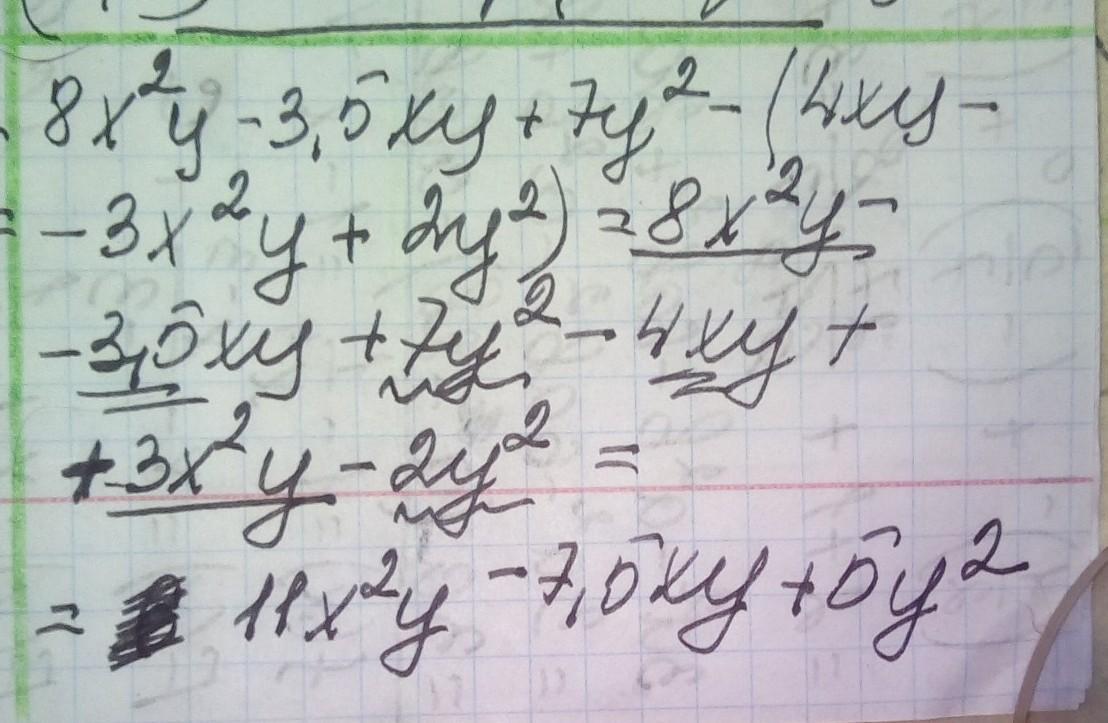 8x²y - 3,5xy + 7y² - (4xy -
- 3x²y + 2y²) = 8x²y -
- 3,5xy + 7y² - 4xy +
+ 3x²y - 2y² =
= 11x²y - 7,5xy + 5y²